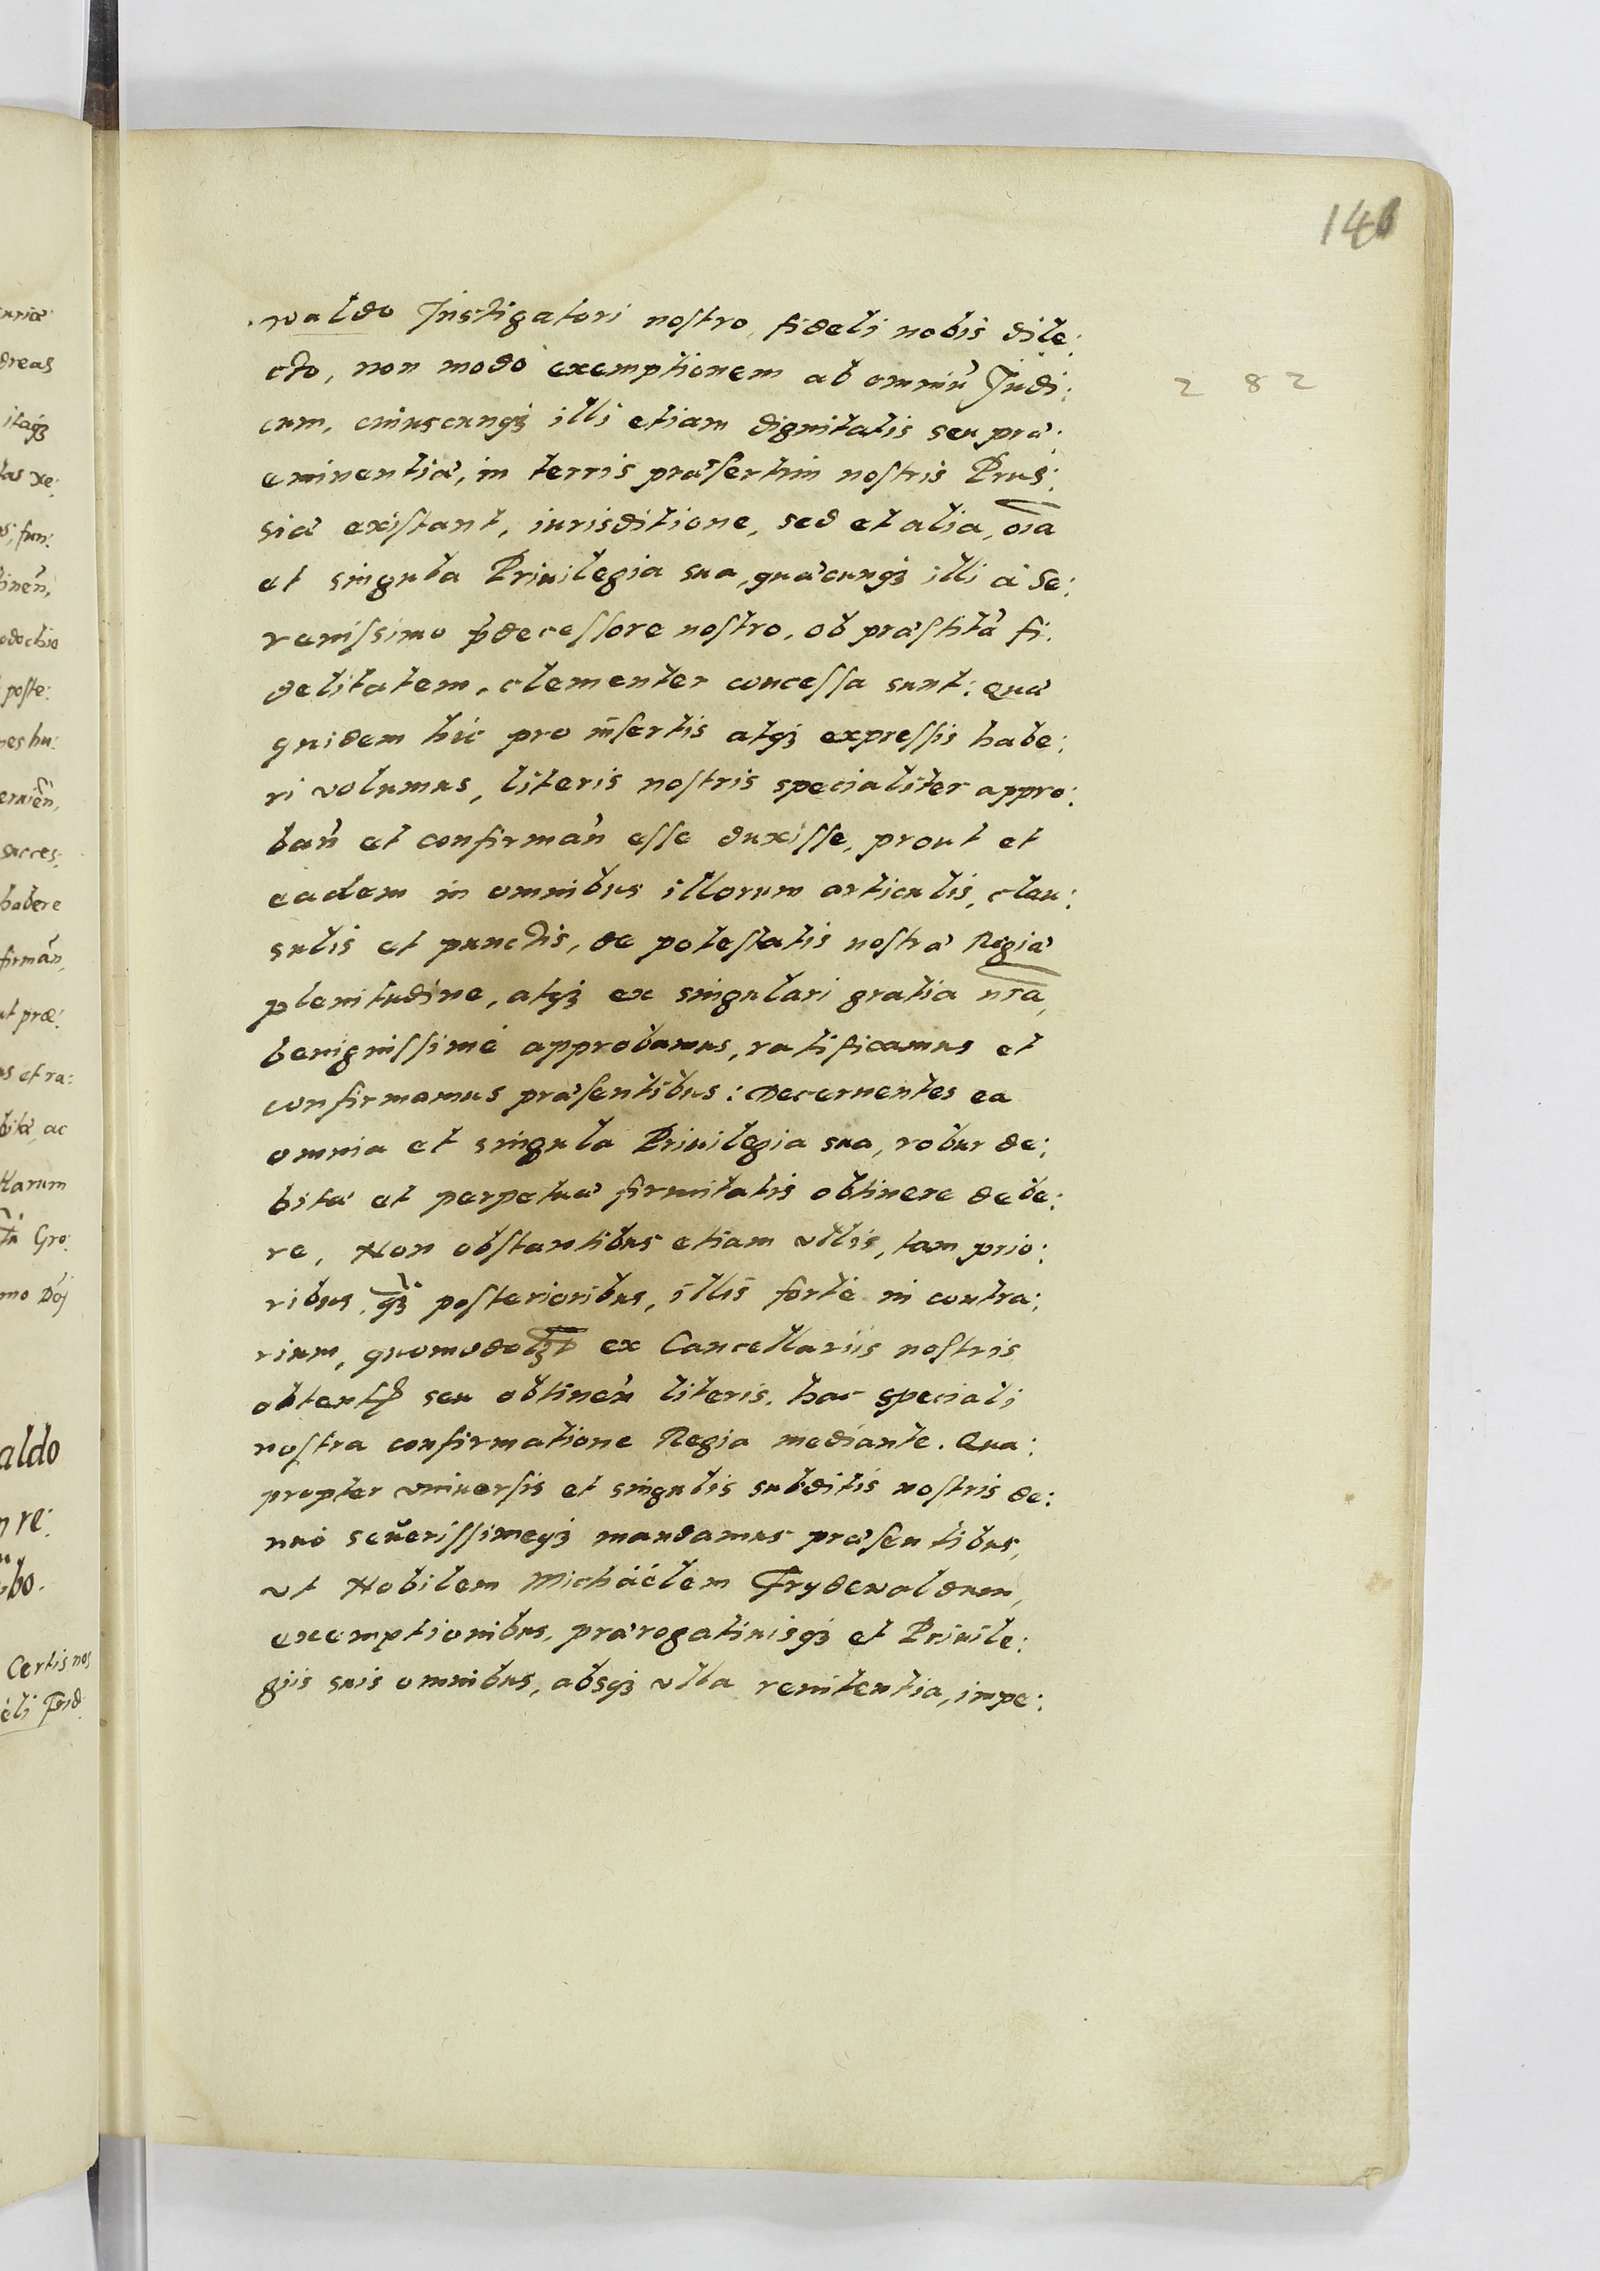 146
waldo Instigatori nostro, fideli nobis dile:
cto, non modo exemptionem ab omniũ Judi:
2 82
cum, cuiuscunqȝ illi etiam dignitatis seu præ:
eminentiæ, in terris præsertim nostris Prus:
siæ existant, iurisditione, sed et alia, oĩa
et singula Priuilegia sua, quæcunqȝ illi à Se:
renissimo p̃decessore nostro, ob præstitã fi:
delitatem, clementer concessa sunt: Quæ
quidem hic pro insertis atqȝ expressis habe:
ri volumus, literis nostris specialiter appro:
bañ et confirmañ esse duxisse, prout et
eadem in omnibus illorum articulis, clau:
sulis et punctis, de potestatis nostræ Regiæ
plenitudine, atqȝ ex singulari gratia nr̃a,
benignissimè approbamus, ratificamus et
confirmamus præsentibus: Decernentes ea
omnia et singula Priuilegia sua, robur de:
bitæ et perpetuæ firmitatis obtinere debe:
re, Non obstantibus etiam vllis, tam prio:
ribus, qȝ̃ posterioribus, illis fortè in contra:
rium, ex Cancellariis nostris
seu obtineñ literis, hac speciali
nostra confirmatione Regia mediante. Qua:
propter vniuersis et singulis subditis nostris de:
nuò seuerissimeqȝ mandamus præsentibus,
vt Nobilem Michäélem Frydewaldum,
exemptionibus, prærogatiuisqȝ et Priuile:
giis suis omnibus, absqȝ vlla renitentia, impe: